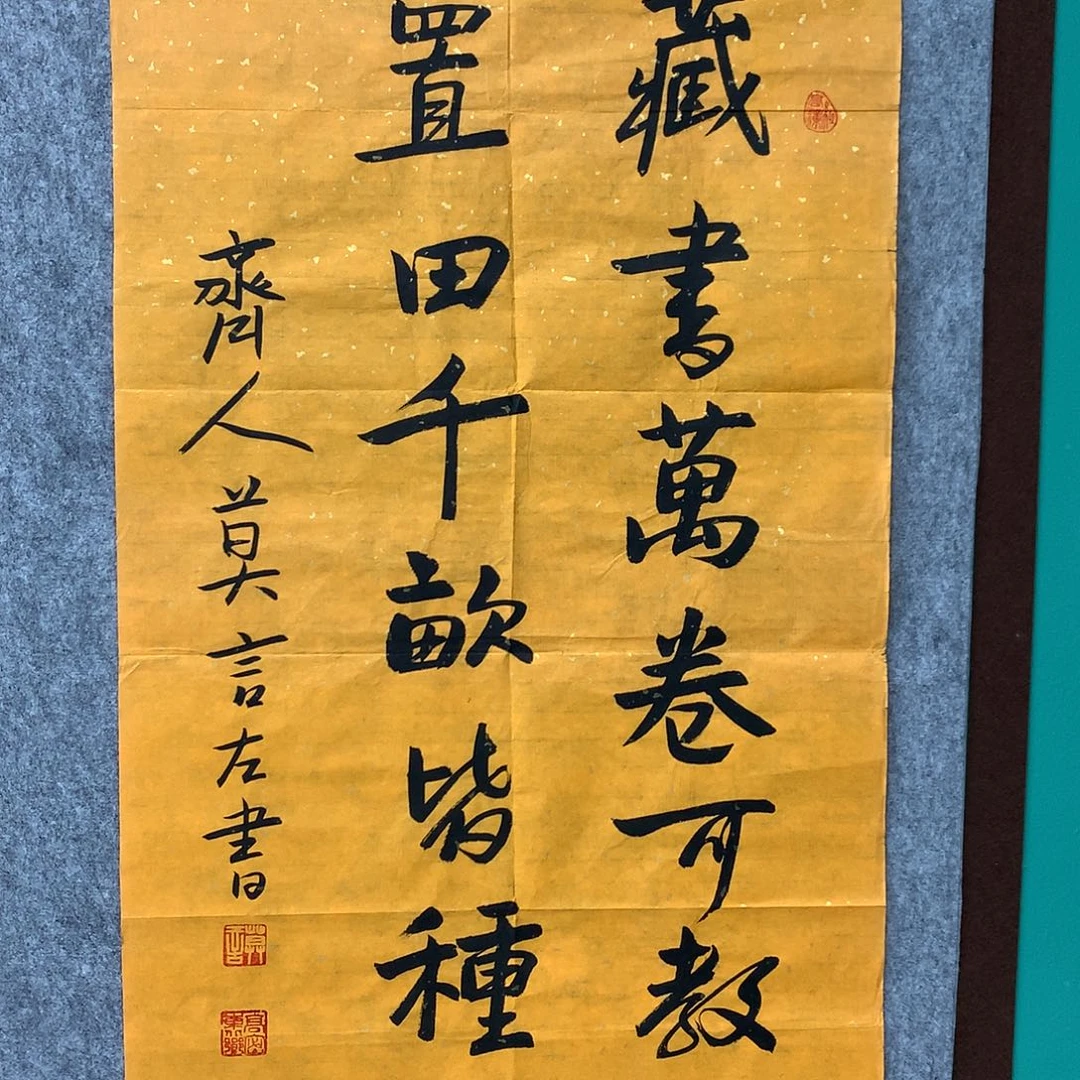 藏書萬卷可教
置田千畝皆種
齊人莫言左書
莫言